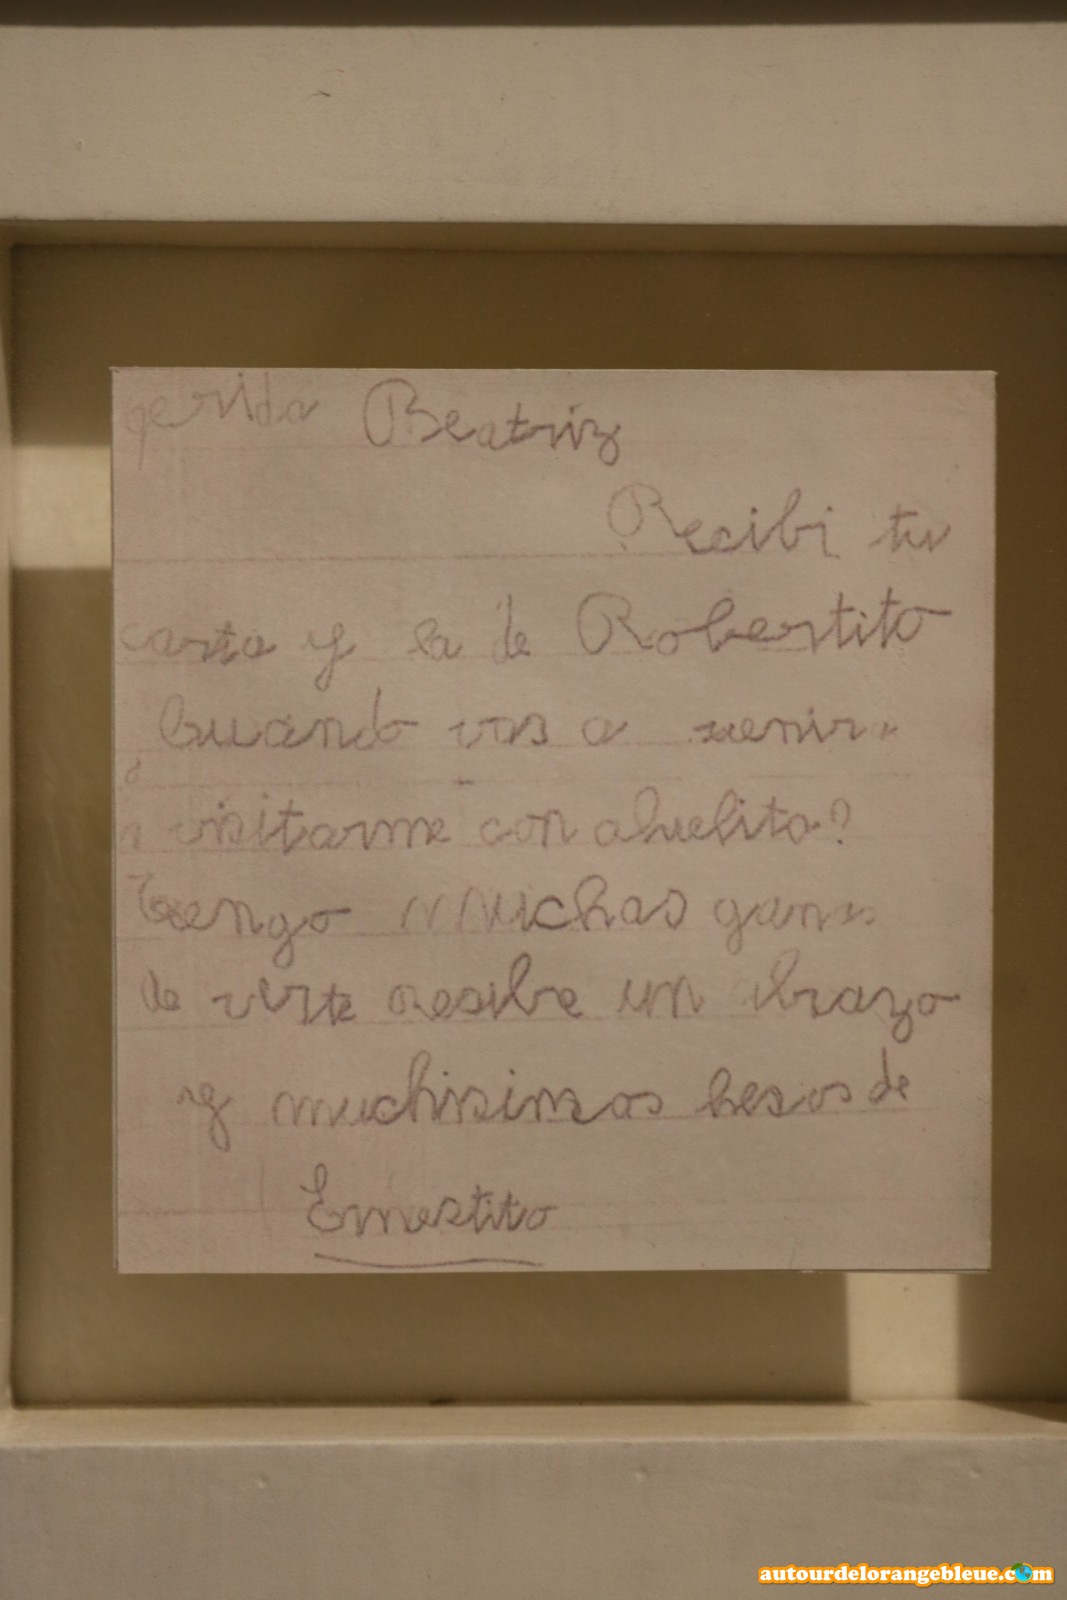 qerida Beatriz
Recibi tu
carta y la de Robertito
¿Cuando vas a venir
a visitarme con abuelita?
Tengo muchas ganas
de verte resibe un abrazo
y muchisimos besos de
Ernestito
autourdelorangebleue.com